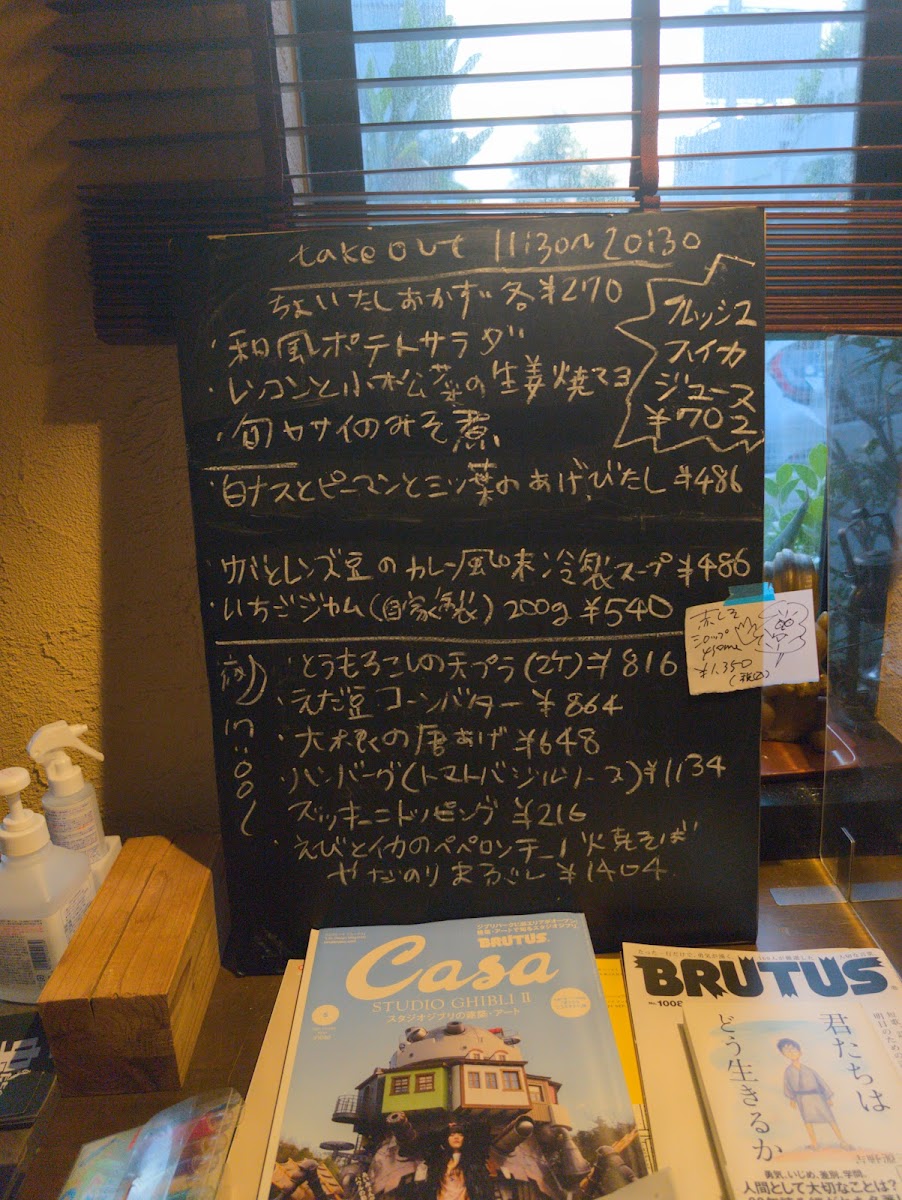 take out 11:30~20:30
ちょいたしおかず 各¥270
・和風ポテトサラダ
・レンコンと小松菜の生姜焼マヨ
・旬ヤサイのみそ煮
フレッシュ
スイカ
ジュース
¥702
・白ナスとピーマンと三ッ葉のあげびたし ¥486
・カレー風味冷製スープ ¥486
・いちごジャム(自家製) 200g ¥540
赤しそ
シロップ
¥1,350
・とうもろこしの天プラ(2ケ) ¥816
・えだ豆コーンバター ¥864
・大根の唐あげ ¥648
・ハンバーグ(トマトバジルソース) ¥1134
・ズッキーニトッピング ¥216
・えびとイカのペペロンチーノ
¥1404
Casa
BRUTUS
STUDIO GHIBLI II
スタジオジブリの建築・アート
BRUTUS
No. 1008
君たちは
どう生きるか
勇気、いじめ、差別、学問、
人間として大切なことは?